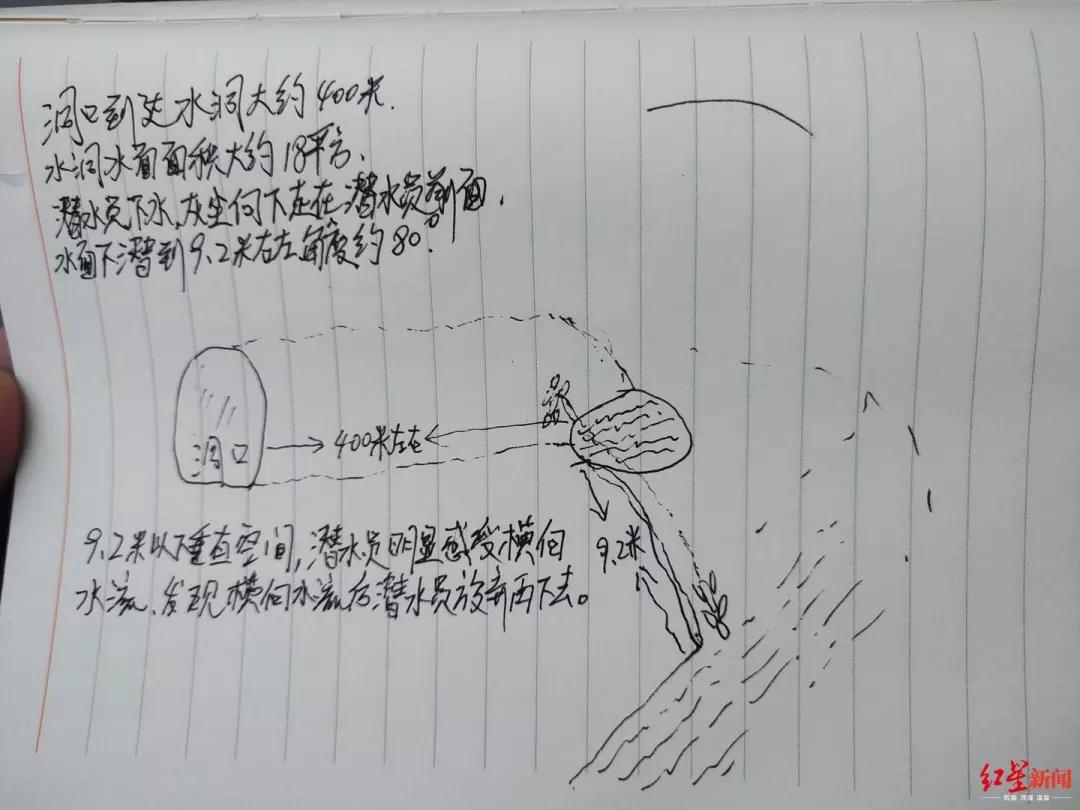 洞口到达水洞大约400米.
水洞水面面积大约18平方.
潜水员下水,灰尘向下走在潜水员前面,
水面下潜到9.2米左右左角度约80°.
洞口
400米左右
9.2米
9.2米以下垂直空间,潜水员明显感受横向
水流.发现横向水流后潜水员放弃再下去。
红星新闻